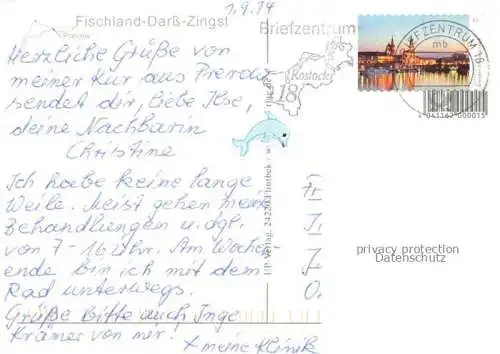 1.9.14
Fischland-Darß-Zingst
Prerow
Briefzentrum
Rostock
18
BRIEFZENTRUM 18
mb
4 041167 000015
Herzliche Grüße von
meiner Kur aus Prerow
sendet dir, liebe Ilse,
deine Nachbarin
Christine
Ich habe keine lange
Weile. Meist gehen meine
Behandlungen u. dgl.
von 7-16 Uhr. Am Wochen-
ende bin ich mit dem
Rad unterwegs.
Grüße bitte auch Inge
Krämer von mir.
x meine Klinik
Verlag, 24220 Flintbek
privacy protection
Datenschutz